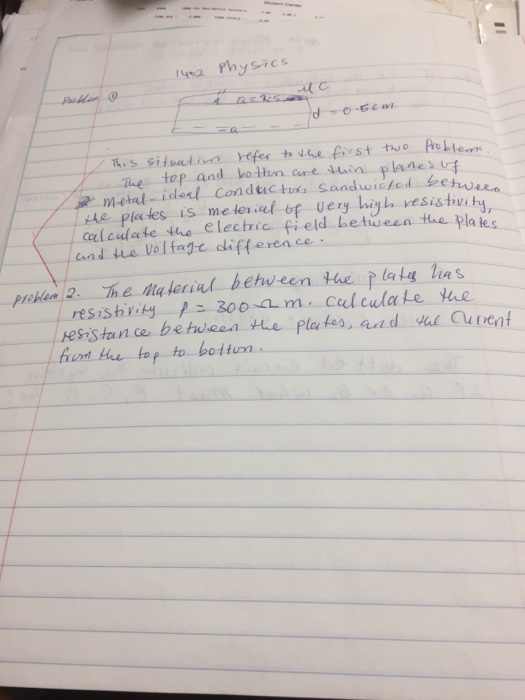 1402 Physics
Problem ①
μC
d = 0.5cm
This situation refer to the first two Problem.
The top and bottm are thin planes of
metal-ideal conductors sandwicked between
the plates is meterial of very high resistivity,
calculate the electric field between the plates
and the voltage difference.
problem 2. The material between the plates has
resistivity ρ = 300 Ω m. calculate the
resistance between the plates, and the current
from the top to bottom.